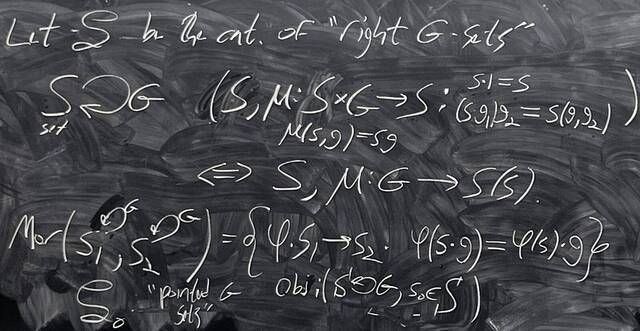 Let S be the cat. of "right G-sets"
S ↩ G (S, μ: S×G → S : s·1 = s
set μ(s,g) = sg (sg₁)g₂ = s(g₁g₂) )
⟺ S, μ: G → S(S).
Mor(S₁↩G, S₂↩G) = { φ: S₁ → S₂ : φ(s·g) = φ(s)·g }
S₀ "pointed G sets" Obs: (S↩G, s₀ ∈ S)